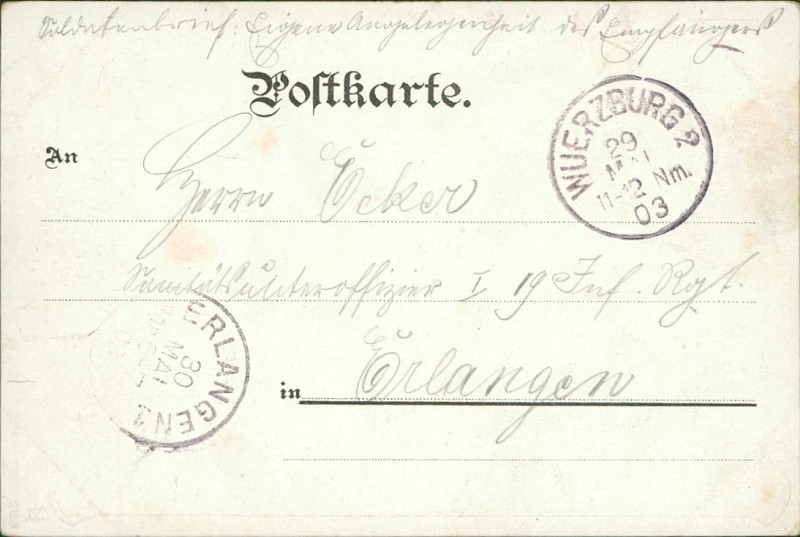 Soldatenbrief: Eigene Angelegenheit des Empfängers
Postkarte.
WUERZBURG 2
29
MAI
11-12 Nm.
03
An
Herrn Ecker
Sanitätsunteroffizier I 19 Inf. Rgt.
ERLANGEN 1
30
MAI
in Erlangen